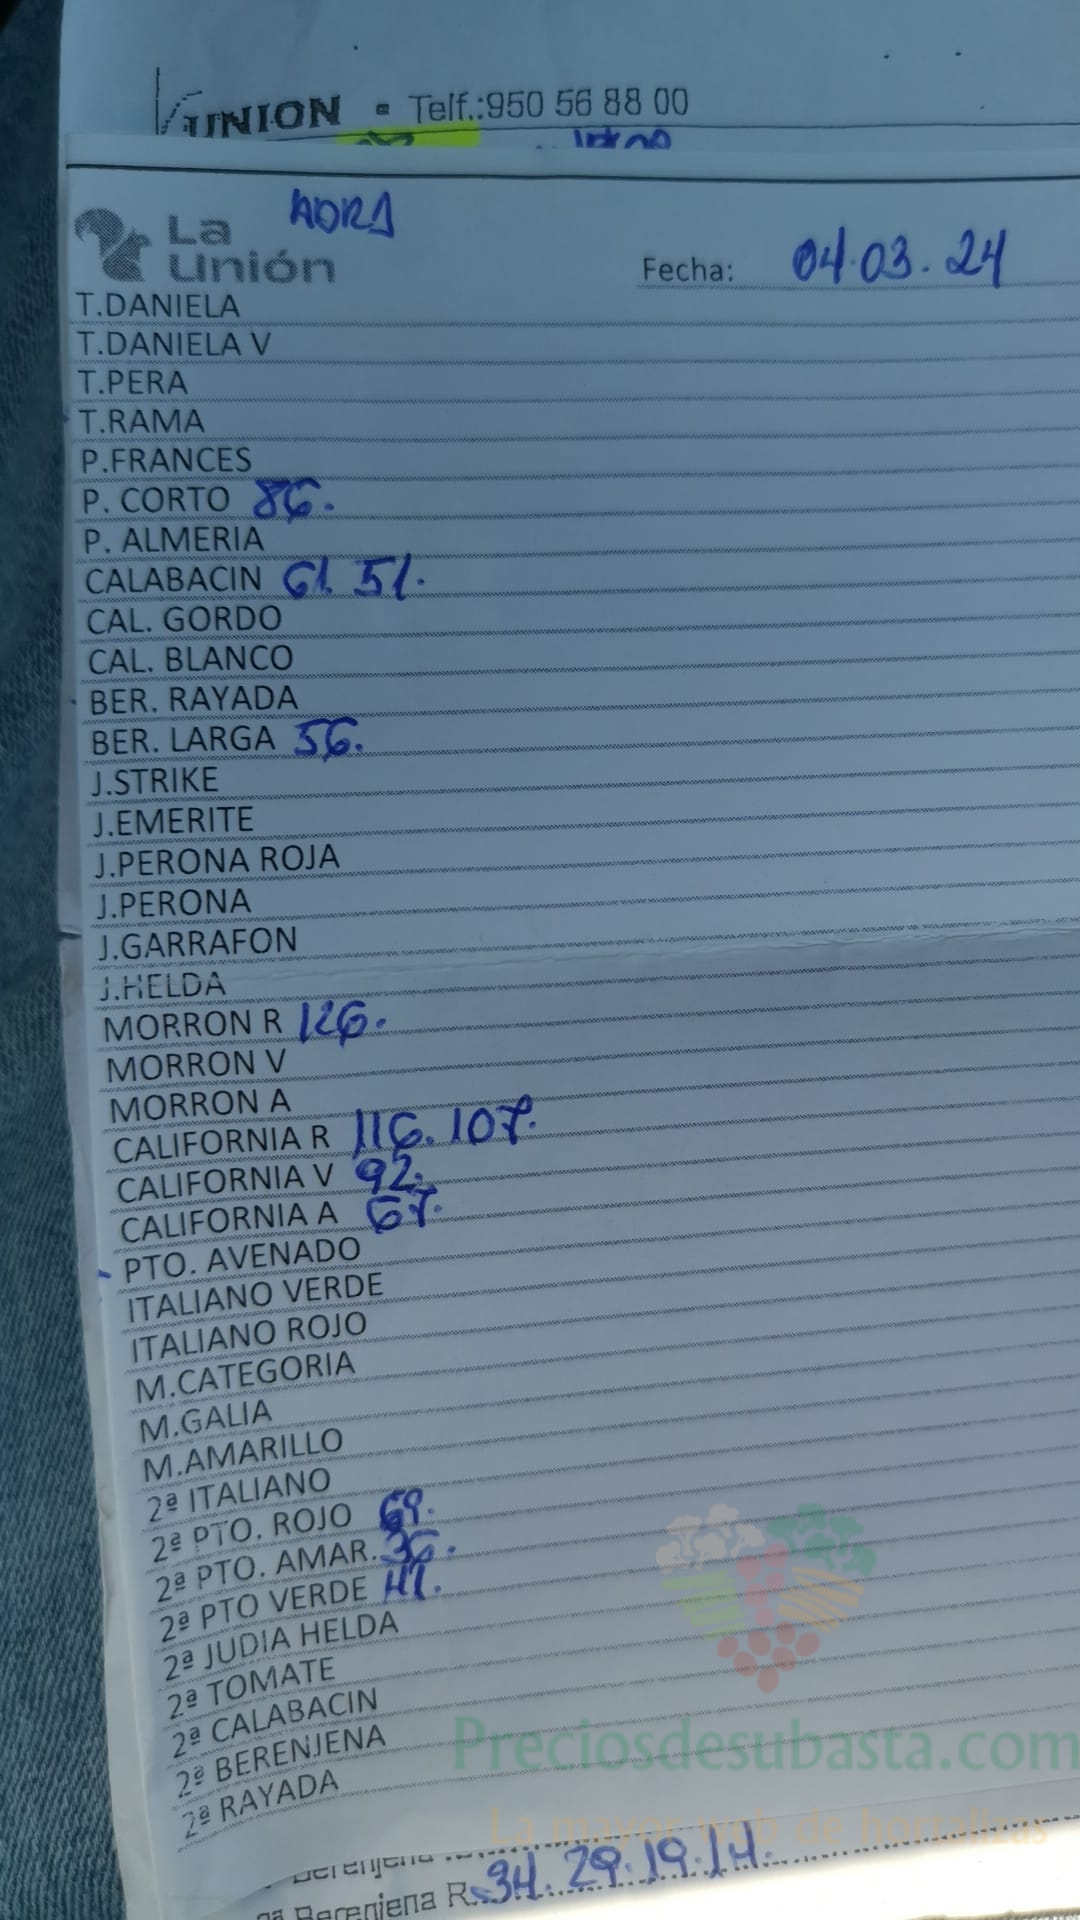 UNION - Telf.:950 56 88 00
La Unión ADRA Fecha: 04.03.24
T.DANIELA
T.DANIELA V
T.PERA
T.RAMA
P.FRANCES
P. CORTO 86.
P. ALMERIA
CALABACIN 61. 51.
CAL. GORDO
CAL. BLANCO
BER. RAYADA
BER. LARGA 56.
J.STRIKE
J.EMERITE
J.PERONA ROJA
J.PERONA
J.GARRAFON
J.HELDA
MORRON R 126.
MORRON V
MORRON A
CALIFORNIA R 116. 107.
CALIFORNIA V 92.
CALIFORNIA A 67.
PTO. AVENADO
ITALIANO VERDE
ITALIANO ROJO
M.CATEGORIA
M.GALIA
M.AMARILLO
2ª ITALIANO
2ª PTO. ROJO 69.
2ª PTO. AMAR. 36.
2ª PTO VERDE 41.
2ª JUDIA HELDA
2ª TOMATE
2ª CALABACIN
2ª BERENJENA
2ª RAYADA
Preciosdesubasta.com
La mayor web de hortalizas
Berenjena
Berenjena R. 34. 29. 19. 14.